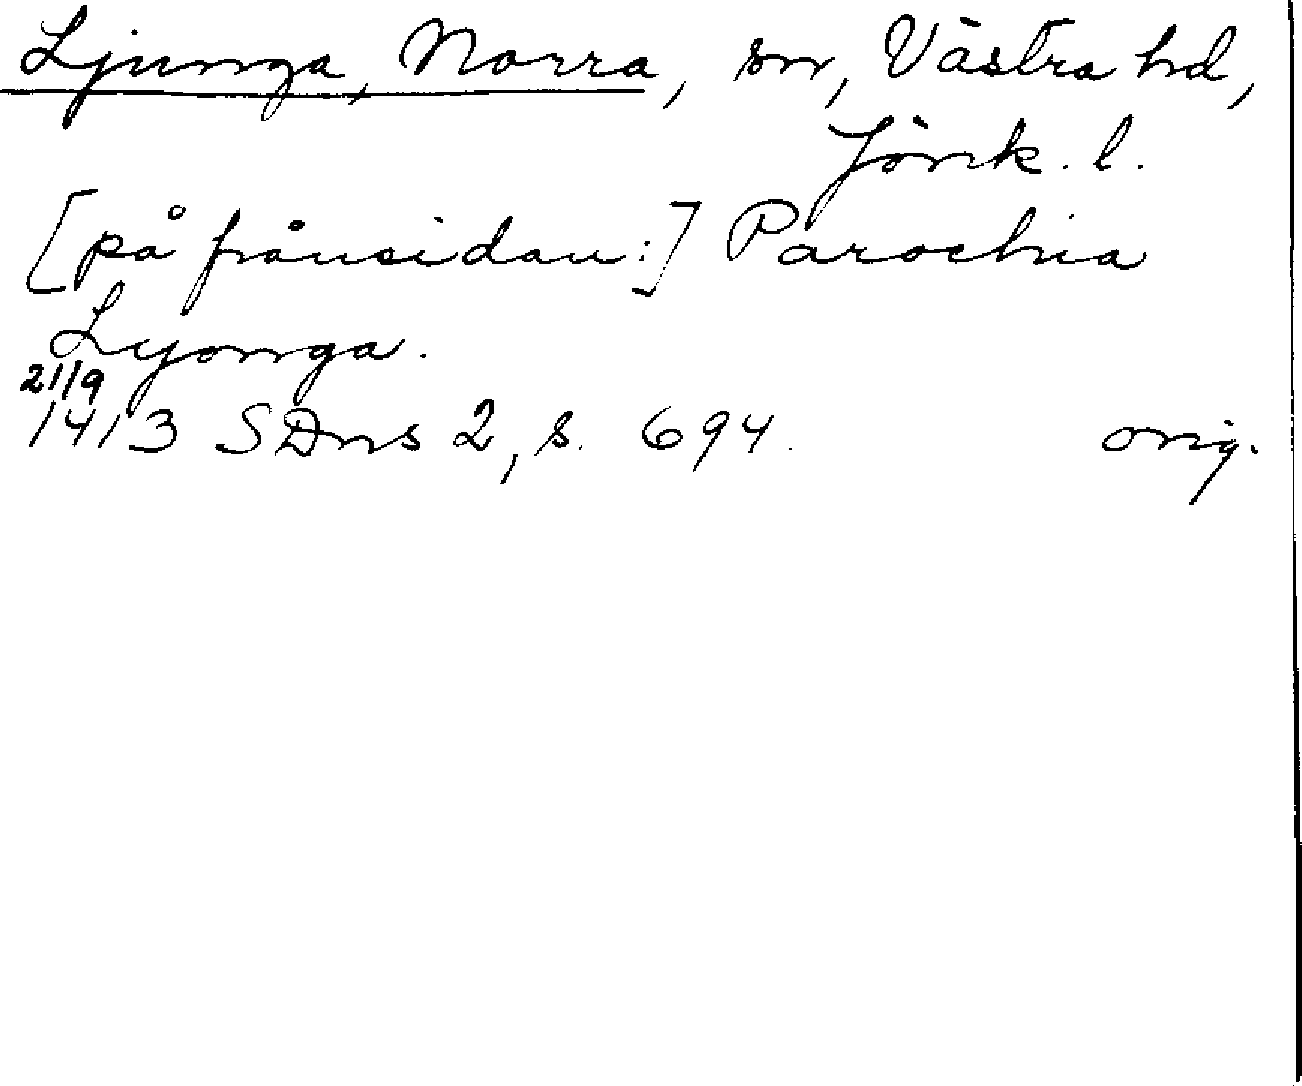 Ljunga, Norra, sn, Västra hd,
Jönk. l.
[på frånsidan:] Parochia
Lyonga.
21/9
1413 SDns 2, s. 694. orig.